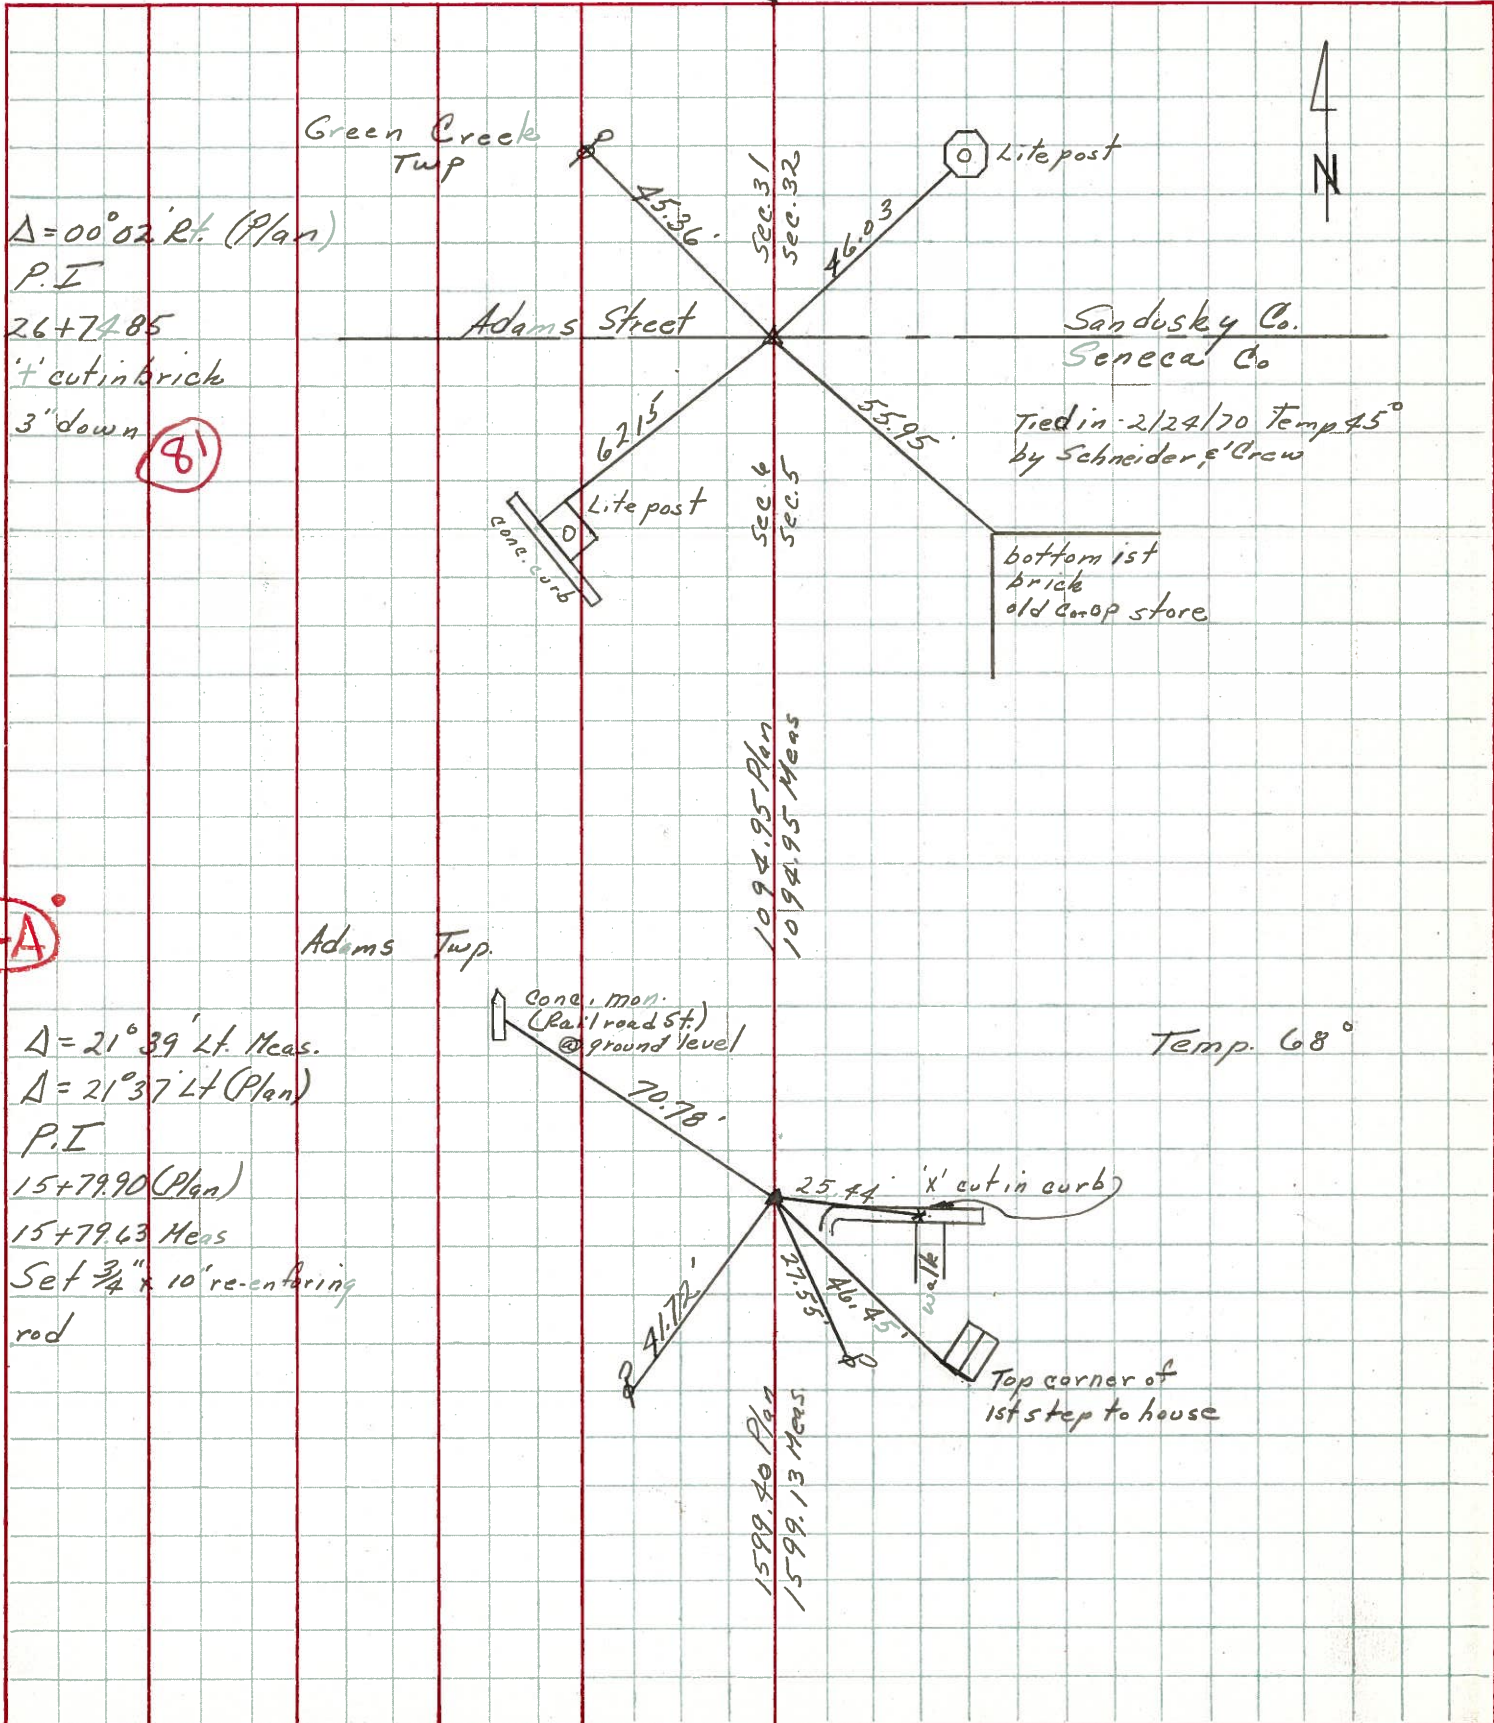 Green Creek
Twp
Δ = 00°02' Rt. (Plan)
P.I
26+74.85
'+' cut in brick
3" down
81
45.36'
Sec. 31
Sec. 32
46.03
Lite post
N
Adams Street
Sandusky Co.
Seneca Co
62.15
55.95'
Tied in - 2/24/70 Temp 45°
by Schneider & Crew
Sec. 6
Sec. 5
Lite post
conc. curb
bottom 1st
brick
old Co-op store
1094.95 Plan
1094.95 Meas
A
Adams Twp.
Conc. mon.
(Railroad St.)
@ ground level
Δ = 21°39' Lt. Meas.
Δ = 21°37' Lt (Plan)
P.I
15+79.90 (Plan)
15+79.63 Meas
Set 3/4" x 10" re-enforing
rod
Temp. 68°
70.78'
25.44'
'X' cut in curb
walk
41.72'
46.45'
Top corner of
1st step to house
1599.40 Plan
1599.13 Meas.